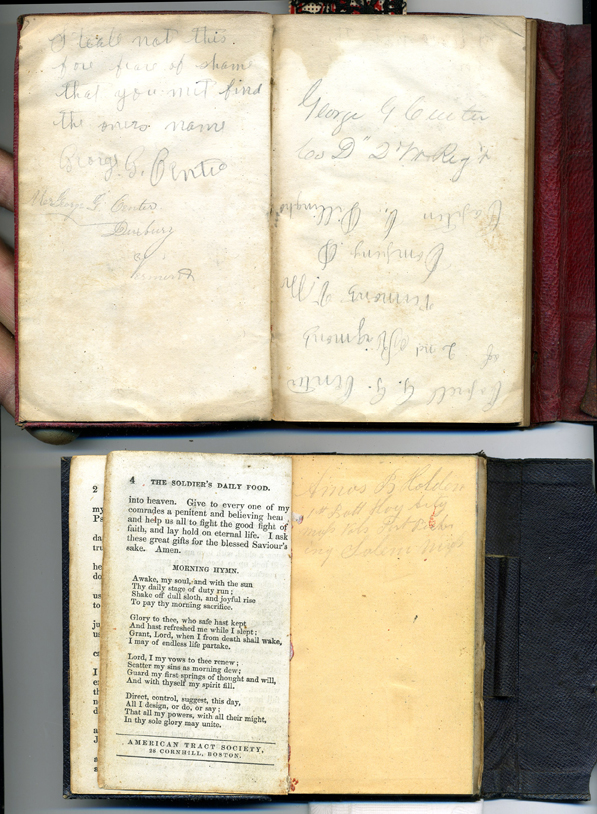 I will not this
fore fear of shame
that you mit find
the oners name
George G. Center
George G. Center
Duxbury
George G Center
Co "D" 2
Captin C. Dillingham
Company D
2nd
of
G. G. Center
2
4 THE SOLDIER'S DAILY FOOD.
into heaven. Give to every one of my
comrades a penitent and believing hear
and help us all to fight the good fight of
faith, and lay hold on eternal life. I ask
these great gifts for the blessed Saviour's
sake. Amen.
MORNING HYMN.
Awake, my soul, and with the sun
Thy daily stage of duty run;
Shake off dull sloth, and joyful rise
To pay thy morning sacrifice.
Glory to thee, who safe hast kept
And hast refreshed me while I slept;
Grant, Lord, when I from death shall wake,
I may of endless life partake.
Lord, I my vows to thee renew;
Scatter my sins as morning dew;
Guard my first springs of thought and will,
And with thyself my spirit fill.
Direct, control, suggest, this day,
All I design, or do, or say;
That all my powers, with all their might,
In thy sole glory may unite.
AMERICAN TRACT SOCIETY,
28 CORNHILL, BOSTON.
Amos B Holden
1st Batt Hvy Arty
Salem